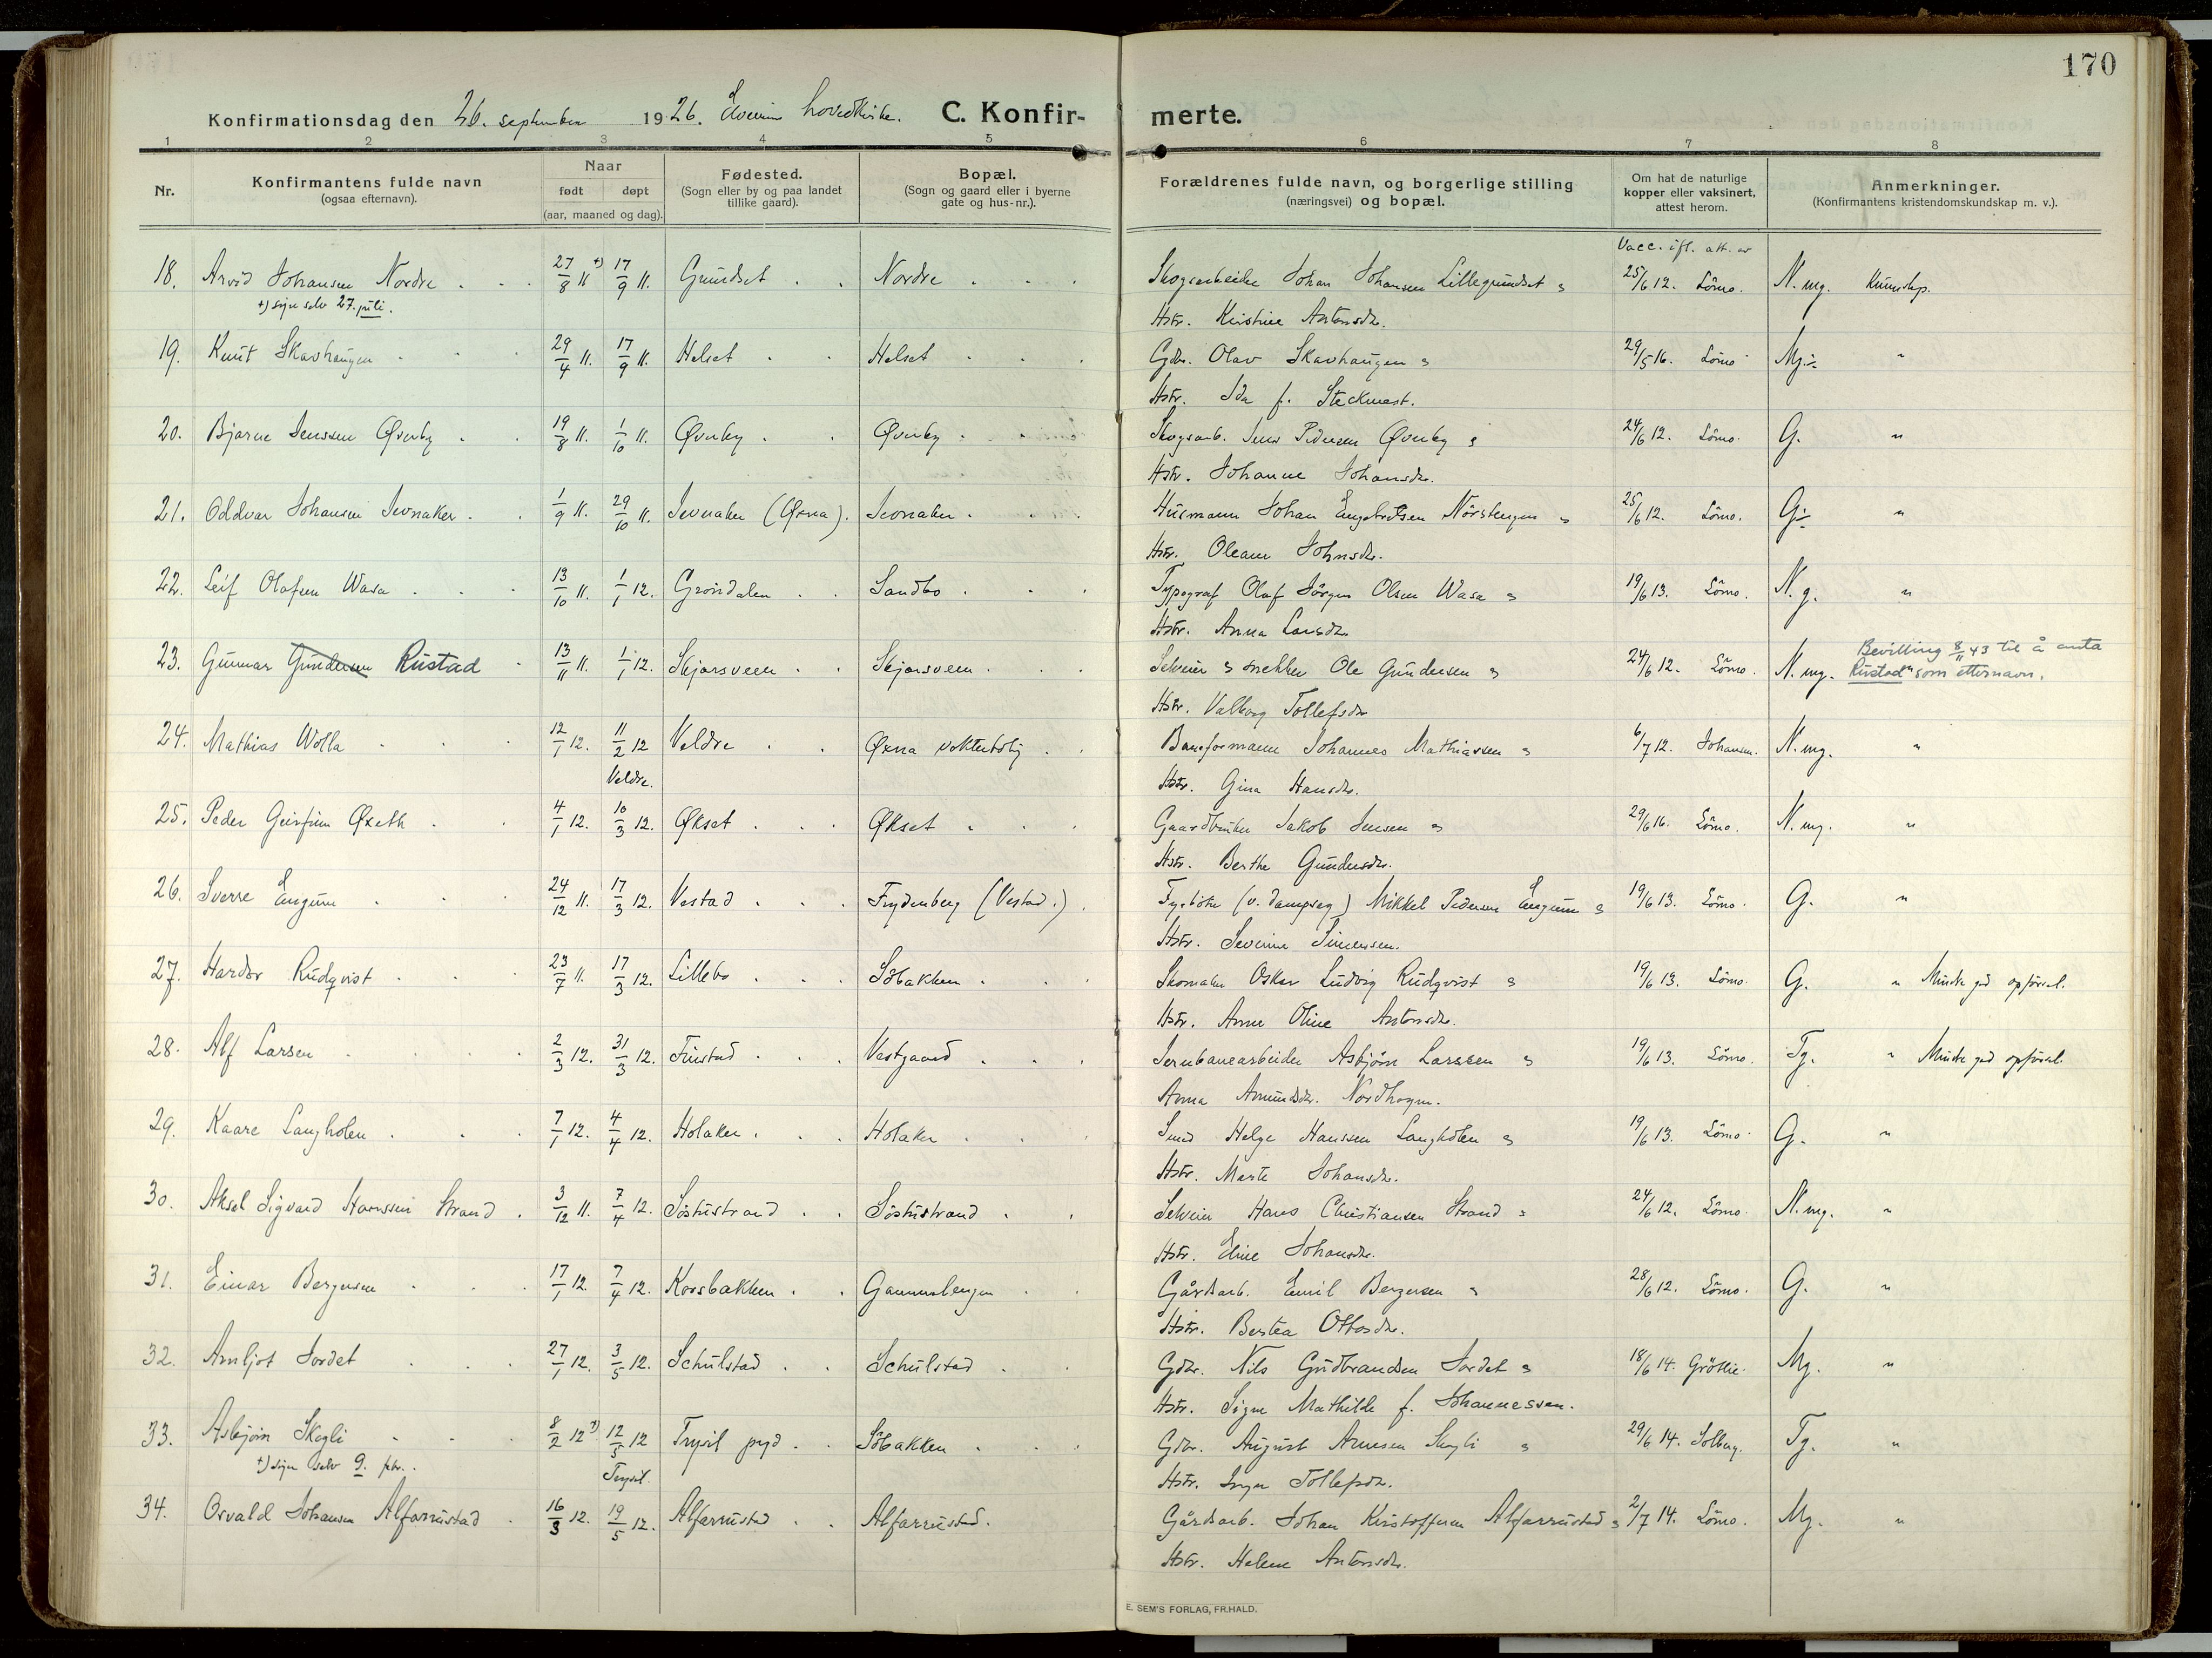 170
Konfirmationsdag den 26. september 1926. Elverum hovedkirke. C. Konfirmerte.
1 2 3 4 5 6 7 8
Nr.
Konfirmantens fulde navn
(ogsaa efternavn).
Naar
født døpt
(aar, maaned og dag).
Fødested.
(Sogn eller by og paa landet
tillike gaard).
Bopæl.
(Sogn og gaard eller i byerne
gate og hus-nr.).
Forældrenes fulde navn, og borgerlige stilling
(næringsvei) og bopæl.
Om hat de naturlige
kopper eller vaksinert,
attest herom.
Anmerkninger.
(Konfirmantens kristendomskundskap m. v.).
Vacc. ifl. att. av
18. Arvid Johansen Nordre 27/8 11 †) 17/9 11. Grundset Nordre Skogsarbeider Johan Johansen Lillegrundset & 25/6 12. Lömo. N. mg. Kundskp.
†) siger selv 27. juli. Hstr. Kristine Antonsdtr.
19. Knut Skavhaugen 29/4 11. 17/9 11. Helset Helset Gdbr. Olav Skavhaugen & 29/5 16. Lömo Mg. ÷ "
Hstr. Ida f. Steckmest.
20. Bjarne Jenssen Øverby 19/8 11. 1/10 11. Øverby Øverby Skogsarb. Jens Pedersen Øverby & 24/6 12. Lömo. G. "
Hstr. Johanne Johansdtr.
21. Oddvar Johansen Jevnaker 1/9 11. 29/10 11. Jevnaker (Øxna). Jevnaker Husmann Johan Engebretsen Nörstengen & 25/6 12. Lömo. G. ÷ "
Hstr. Oleane Johnsdtr.
22. Leif Olafsen Wasa 13/10 11. 1/1 12. Grøndalen Sandbo Typograf Olaf Jörgen Olsen Wasa & 19/6 13. Lömo. N. g. "
Hstr. Anna Larsdtr.
23. Gunnar Gundersen Rustad 13/11 11. 1/1 12. Skjærsveen Skjærsveen Selveier & snekker Ole Gundersen & 24/6 12. Lömo. N. mg. Bevilling 8/11 43 til å anta
Rustad" som etternavn.
Hstr. Valborg Tollefsdtr
24. Mathias Wolla 12/1 12. 11/2 12 Veldre Øxna vokterbolig Baneformann Johannes Mathiassen & 6/7 12. Johansen. N. mg. "
Veldre. Hstr. Gina Hansdtr.
25. Peder Geirfinn Øxeth 4/1 12. 10/3 12. Økset Økset Gaardbruker Jakob Jensen & 29/6 16. Lömo. N. mg. "
Hstr. Berthe Gundersdtr.
26. Sverre Engum 24/12 11. 17/3 12. Vestad Frydenberg (Vestad.) Fyrböter (v. dampsag) Mikkel Pedersen Engum & 19/6 13. Lömo. G. "
Hstr. Severine Simensen.
27. Hardor Rudqvist 23/7 11. 17/3 12. Lillebo Söbakken Skomaker Oskar Ludvig Rudqvist & 19/6 13. Lömo. G. " Mindre god opførsel.
Hstr. Anne Oline Antonsdtr.
28. Alf Larsen 2/3 12. 31/3 12. Finstad Vestgaard Jernbanearbeider Asbjörn Larssen & 19/6 13. Lömo. Tg. " Mindre god opførsel.
Anna Amundsdtr. Nordhagen.
29. Kaare Langholen 7/1 12. 4/4 12. Holaker Holaker Smed Helge Hanssen Langholen & 19/6 13. Lömo. G. "
Hstr. Marte Johansdtr.
30. Aksel Sigvard Hanssen Strand 3/12 11. 7/4 12. Söstustrand Söstustrand Selveier Hans Christiansen Strand & 24/6 12. Lömo. N. mg. "
Hstr. Eline Johansdtr.
31. Einar Bergersen 17/1 12. 7/4 12. Korsbakken Gårdsarb. Emil Bergersen & 28/6 12. Lömo. G. "
Hstr. Bertea Ottosdtr.
32. Arnljot Jordet 27/1 12. 3/5 12. Schulstad Schulstad Gdbr. Nils Gudbrandsen Jordet & 18/6 14. Gröttie. Mg. "
Hstr. Signe Mathilde f. Johannessen.
33. Asbjörn Skogli 8/2 12 †) 12/5 12 Trysil prgd. Söbakken Gdbr. August Arnesen Skogli & 29/6 14. Solberg. Tg. "
†) siger selv 9. febr. Trysil. Hstr. Tollefsdtr.
34. Osvald Johansen Alfarrustad 16/3 12. 19/5 12. Alfarrustad Alfarrustad. Gårdsarb. Johan Kristoffersen Alfarrustad & 2/7 14. Lömo. Mg. "
Hstr. Helene Antonsdtr.
E. SEM'S FORLAG, FR.HALD.